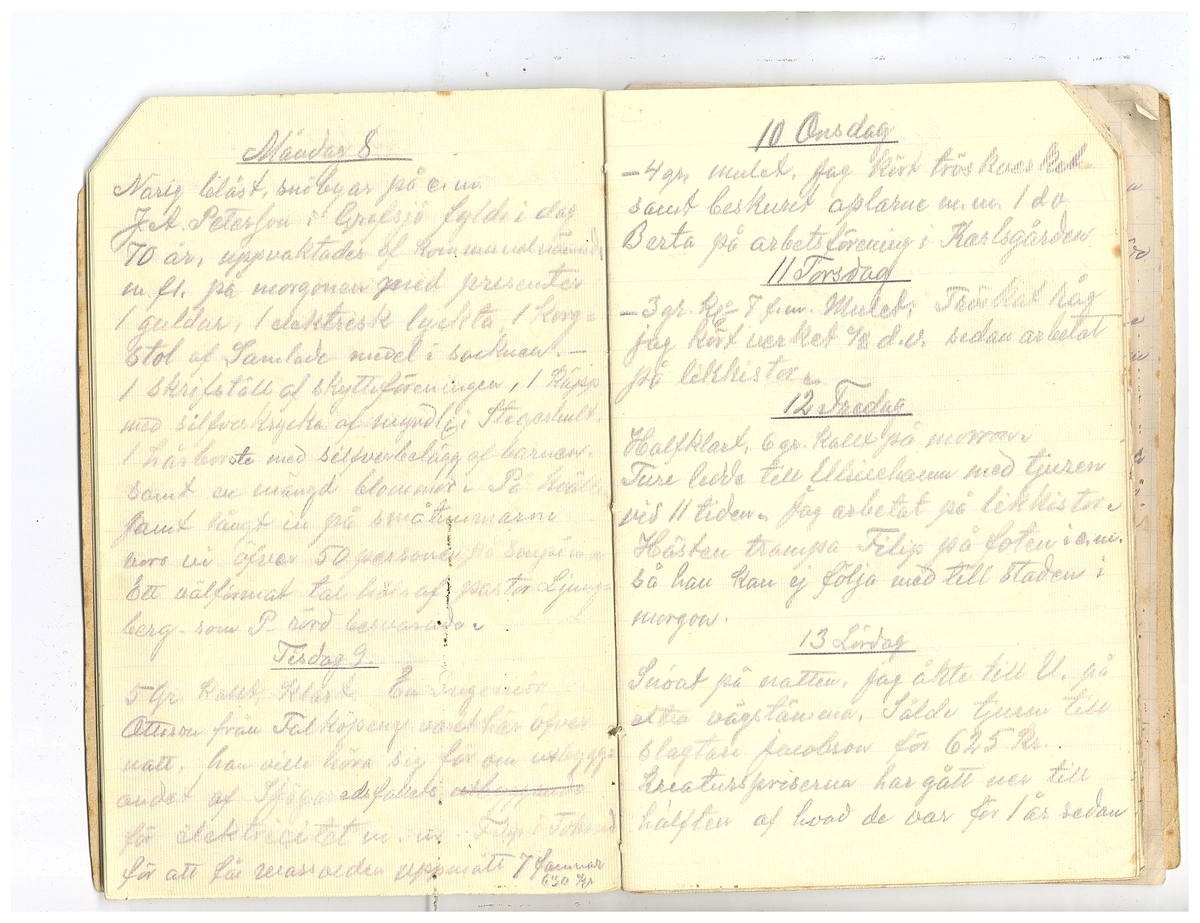 Måndag 8
Narig blåst, snöbyar på e.m.
J.A. Peterson i Grofsjö fylde i dag
70 år, uppvaktades af kommunalnämnd
m. fl. på morgonen med presenter
1 guldur, 1 elektrisk lyckta, 1 korg=
stol af Samlade medel i socknen. —
1 skrifställ af skytteföreningen, 1 Käpp
med silfverkrycka af i Stegershult.
1 hårborste med silfverbelägg af barnen.
samt en mängd blommor. På kväll
samt långt in på småtimmarn
voro vi öfver 50 personer på
Ett välformat tal höls af pastor Ljung=
berg. som P. rörd besvarade.
Tisdag 9.
5 gr. Kallt, Klart. En Ingeniör
Ottoson från Falköping var här öfver
natt, han ville höra sig för om utbygg=
andet af fallets utbyggande
för elektricitet m. m. Filip i
för att få massveden uppmätt 7 famnar
630 Kr
10 Onsdag
–4 gr. mulet. Jag kört tröskverket
samt beskurit aplarne m.m. 1 d.v.
Berta på arbetsförening i Karlsgården
11 Torsdag
–3 gr. Kl– 7 f.m. Mulet, Tröskat Råg
jag kört verket 1/2 d.v. sedan arbetat
på likkistor.
12 Fredag
Halfklart, 6 gr. kallt på morron.
Ture ledde till Ulricehamn med tjuren
vid 11 tiden. Jag arbetat på likkistor.
Hästen trampa Filip på foten i e.m.
så han kan ej följa med till staden i
morgon.
13 Lördag
Snöat på natten, jag åkte till U. på
extra vägstämma. Sålde tjuren till
slagtare Jacobson för 625 Kr.
Kreaturspriserna har gått ner till
hälften af hvad de var för 1 år sedan